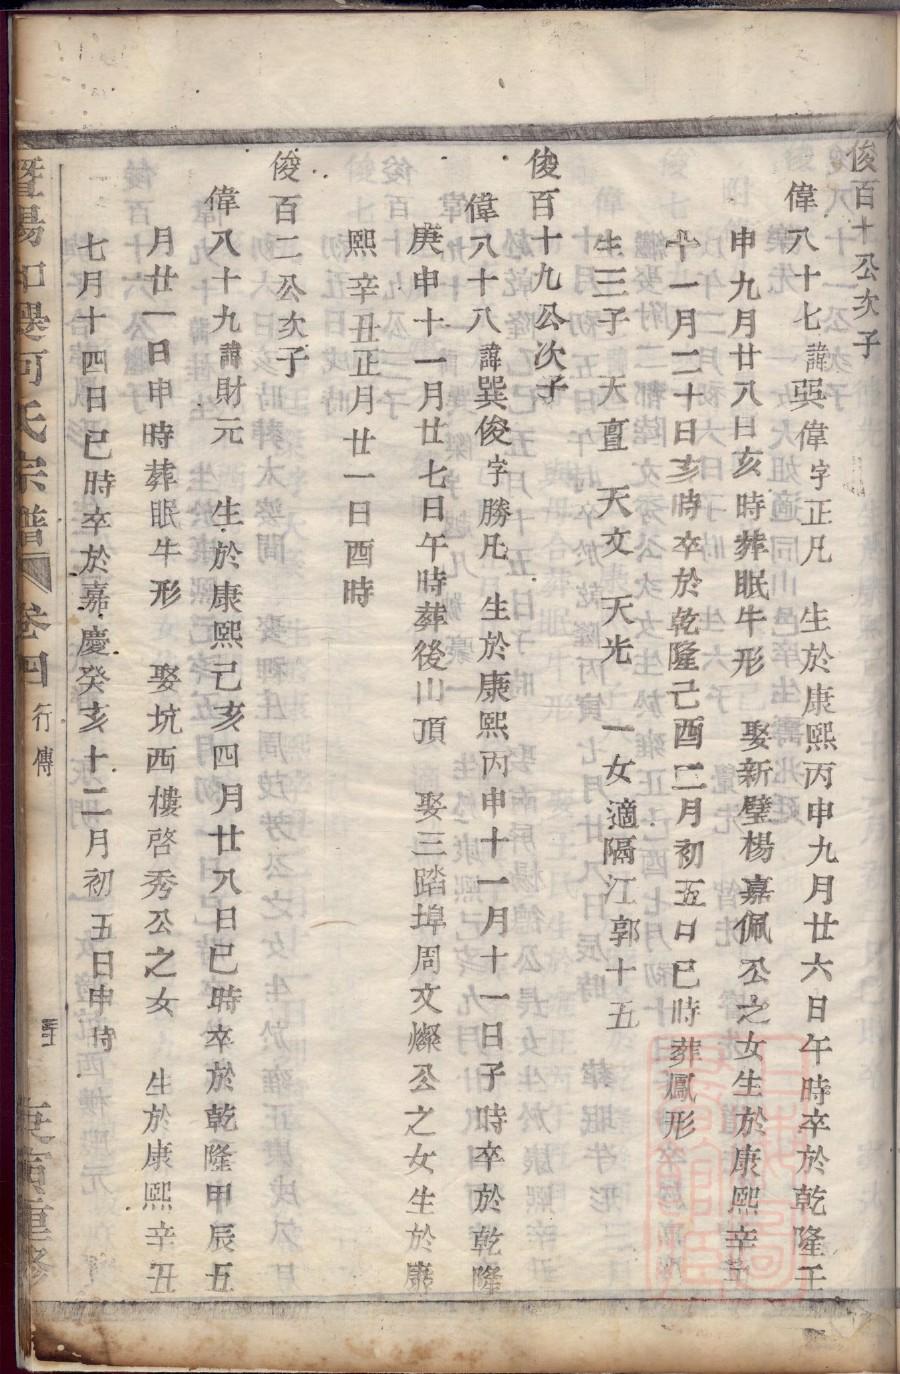 俊百十公次子
偉八十七諱巽偉字正凡 生於康熙丙申九月廿六日午時卒於乾隆壬
申九月廿八日亥時葬眠牛形 娶新璧楊嘉佩公之女生於康熙辛丑
十一月二十日亥時卒於乾隆己酉二月初五日巳時葬鳳形
生三子 大亶 天文 天光 一女適隔江郭十五
俊百十九公次子
偉八十八諱巽俊字勝凡 生於康熙丙申十一月十一日子時卒於乾隆
庚申十一月廿七日午時葬後山頂 娶三踏埠周文燦公之女生於康
熙辛丑正月廿一日酉時
俊百二公次子
偉八十九諱財元 生於康熙己亥四月廿八日巳時卒於乾隆甲辰五
月廿一日申時葬眠牛形 娶坑西樓啓秀公之女 生於康熙辛丑
七月十四日巳時卒於嘉慶癸亥十二月初五日申時
暨陽 何氏宗譜 卷四 行傳 重修